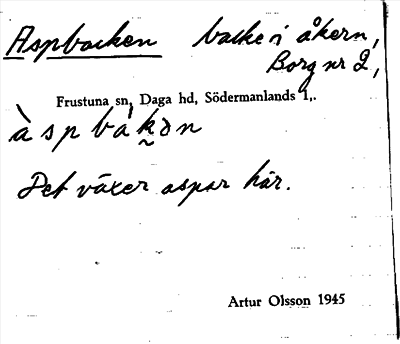 Aspbacken backe i åkern,
Borg nr 2,
Frustuna sn, Daga hd, Södermanlands l.
àspbàk̰ən
Det växer aspar här.
Artur Olsson 1945